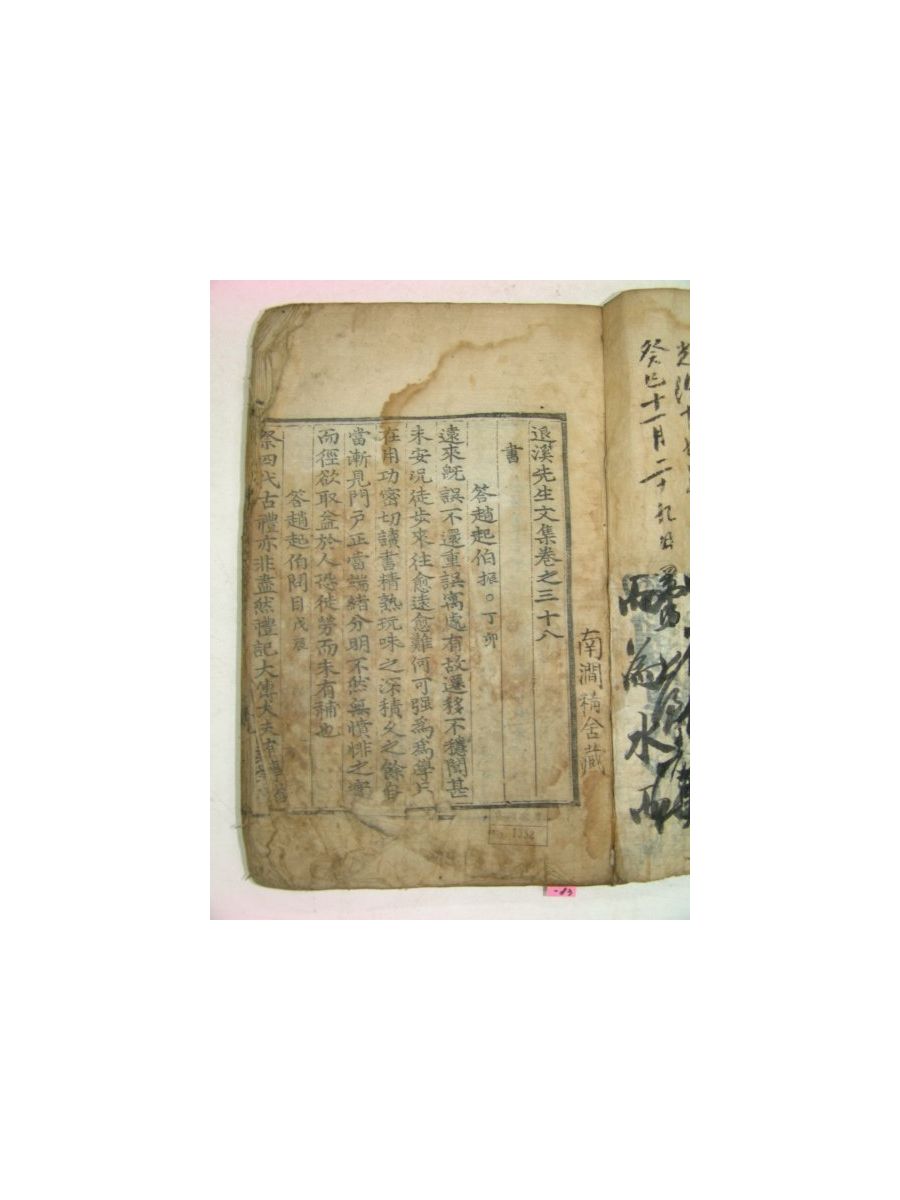 癸巳十一月二十九日
而為水而
南澗精舍藏
退溪先生文集卷之三十八
書
答趙起伯振○丁卯
遠來旣誤不還重誤寓處有故遷移不穩聞甚
未安況徒步來往愈遠愈難何可强爲爲學只
在用功密切讀書精熟玩味之深積久之餘自
當漸見門戶正當端緒分明不然無憤悱之實
而徑欲取益於人恐徒勞而未有補也
答趙起伯問目戊辰
祭四代古禮亦非盡然禮記大傳大夫
1352
-83